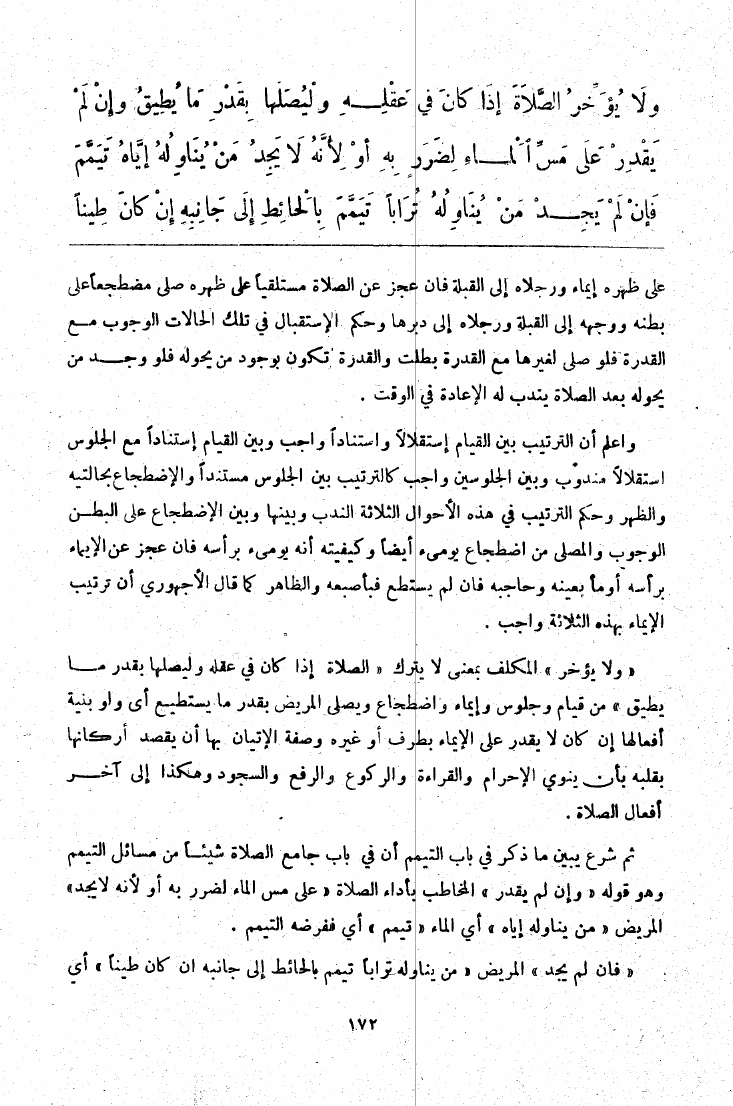 ولَا يُؤَخِّرِ الصَّلَاةَ إِذَا كَانَ فِي عَقْلِهِ ولْيُصَلِّهَا بِقَدْرِ مَا يُطِيقُ وإِنْ لَمْ
يَقْدِرْ عَلَى مَسِّ الْمَاءِ لِضَرَرٍ بِهِ أَوْ لِأَنَّهُ لَا يَجِدُ مَنْ يُنَاوِلُهُ إِيَّاهُ تَيَمَّمَ
فَإِنْ لَمْ يَجِدْ مَنْ يُنَاوِلُهُ تُرَاباً تَيَمَّمَ بِالْحَائِطِ إِلَى جَانِبِهِ إِنْ كَانَ طِيناً
على ظهره إيماء ورجلاه إلى القبلة فان عجز عن الصلاة مستلقياً على ظهره صلى مضطجعاً على
بطنه ووجهه إلى القبلة ورجلاه إلى دبرها وحكم الإستقبال في تلك الحالات الوجوب مع
القدرة فلو صلى لغيرها مع القدرة بطلت والقدرة تكون بوجود من يحوله فلو وجد من
يحوله بعد الصلاة يندب له الإعادة في الوقت .
واعلم أن الترتيب بين القيام إستقلالاً واستناداً واجب وبين القيام إستناداً مع الجلوس
استقلالاً مندوب وبين الجلوسين واجب كالترتيب بين الجلوس مستنداً والإضطجاع بحالتيه
والظهر وحكم الترتيب في هذه الأحوال الثلاثة الندب وبينها وبين الإضطجاع على البطن
الوجوب والمصلى من اضطجاع يومىء أيضاً وكيفيته أنه يومىء برأسه فان عجز عن الإيماء
برأسه أومأ بعينه وحاجبه فان لم يستطع فبأصبعه والظاهر كما قال الأجهوري أن ترتيب
الإيماء بهذه الثلاثة واجب .
« ولا يؤخر » المكلف بمعنى لا يترك « الصلاة إذا كان في عقله وليصلها بقدر ما
يطيق » من قيام وجلوس وإيماء واضطجاع ويصلى المريض بقدر ما يستطيع أى ولو بنية
أفعالها إن كان لا يقدر على الإيماء بطرف أو غيره وصفة الإتيان بها أن يقصد أركانها
بقلبه بأن ينوي الإحرام والقراءة والركوع والرفع والسجود وهكذا إلى آخر
أفعال الصلاة .
ثم شرع يبين ما ذكر في باب التيمم أن في باب جامع الصلاة شيئاً من مسائل التيمم
وهو قوله « وإن لم يقدر » المخاطب بأداء الصلاة « على مس الماء لضرر به أو لأنه لا يجد»
المريض « من يناوله إياه » أي الماء « تيمم » أي ففرضه التيمم .
« فان لم يجد » المريض « من يناوله تراباً تيمم بالحائط إلى جانبه ان كان طيناً » أي
١٧٢